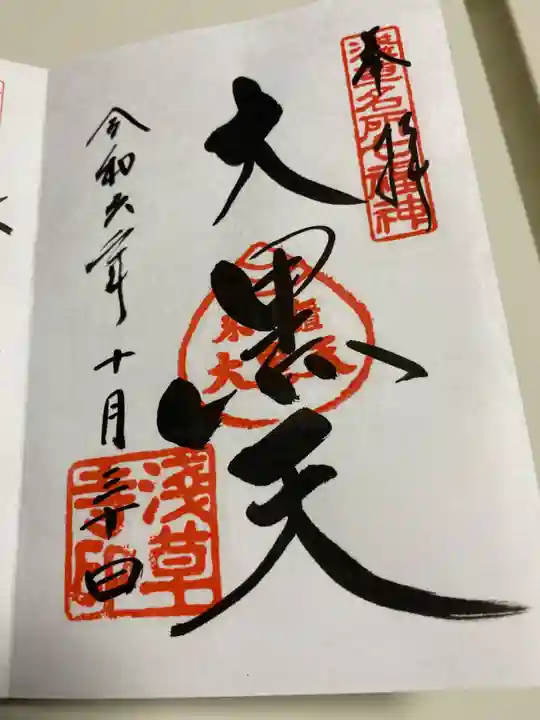 奉拝
淺草名所七福神
大黒天
令和六年十月三十日
淺草寺印